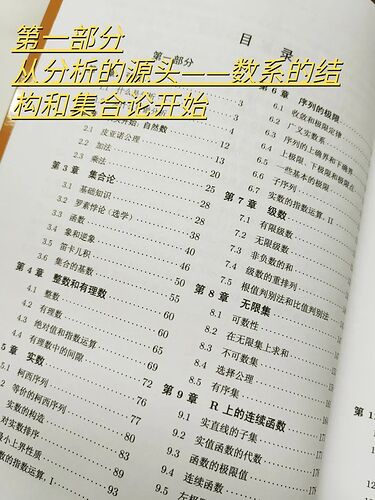 第一部分
从分析的源头——数系的结
构和集合论开始
目 录
第一部分
2.1 皮亚诺公理
2.2 加法
2.3 乘法 20
第 3 章 集合论 25
3.1 基础知识 28
3.2 罗素悖论（选学） 28
3.3 函数 38
3.4 象和逆象 40
3.5 笛卡儿积 45
3.6 集合的基数 50
第 4 章 整数和有理数 55
4.1 整数 60
4.2 有理数 60
4.3 绝对值和指数运算 65
4.4 有理数中的间隙 69
第 5 章 实数 72
5.1 柯西序列 76
5.2 等价的柯西序列 77
实数的构造 80
对实数排序
最小上界性质
实数的指数运算，I 93
第 6 章 序列的极限
6.1 收敛和极限定律
6.2 广义实数系
6.3 序列的上确界和下确界
6.4 上极限、下极限和极限点
6.5 一些基本的极限
6.6 子序列
6.7 实数的指数运算，II
第 7 章 级数
7.1 有限级数
7.2 无限级数
7.3 非负数的和
7.4 级数的重排列
7.5 根值判别法和比值判别法
第 8 章 无限集
8.1 可数性
8.2 在无限集上求和
8.3 不可数集
8.4 选择公理
8.5 有序集
第 9 章 R 上的连续函数
9.1 实直线的子集
9.2 实值函数的代数
9.3 函数的极限值
9.4 连续函数